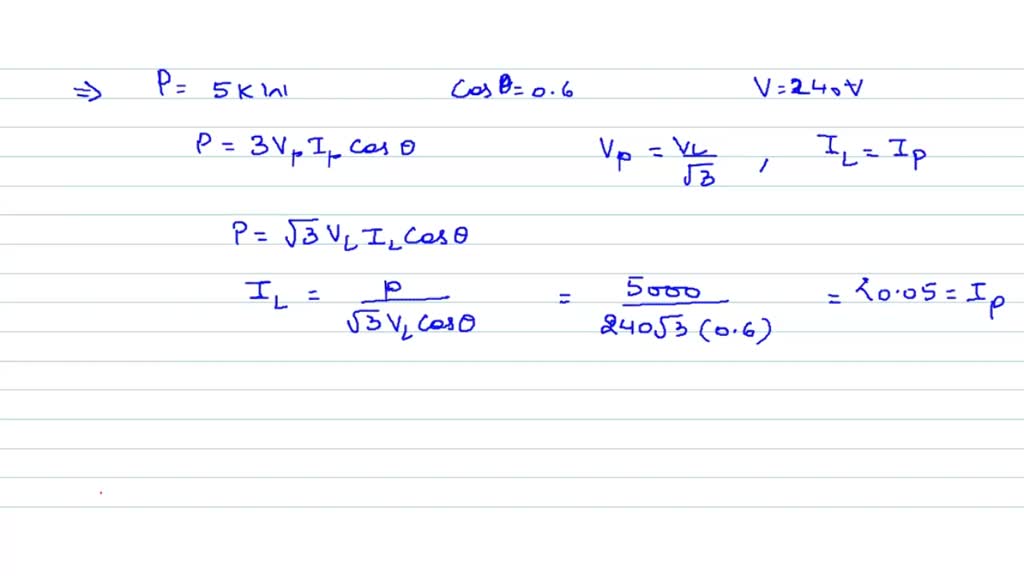 ⇒ P = 5KW cosθ=0.6 V=240V
P = 3V_p I_p cosθ V_p = V_L/√3 , I_L = I_p
P = √3 V_L I_L cosθ
I_L = P/(√3 V_L cosθ) = 5000/(240√3 (0.6)) = 20.05 = I_p